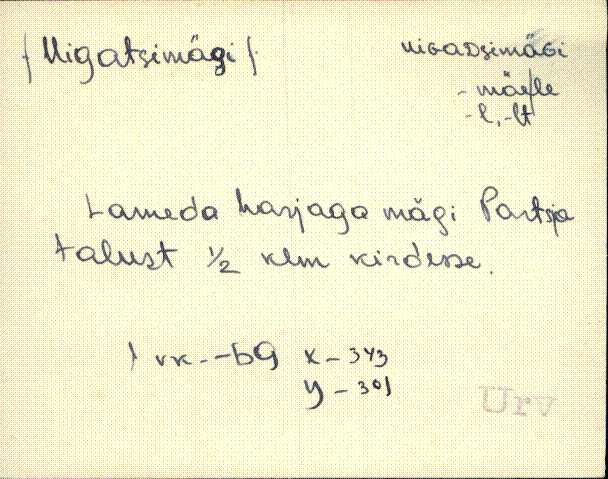 { Nigatsimägi }
nigaDsimäGi
- mäele
- l, -lt
Lameda harjaga mägi Partsja
talust 1/2 klm kirdesse.
x - 343
y - 301
Urv